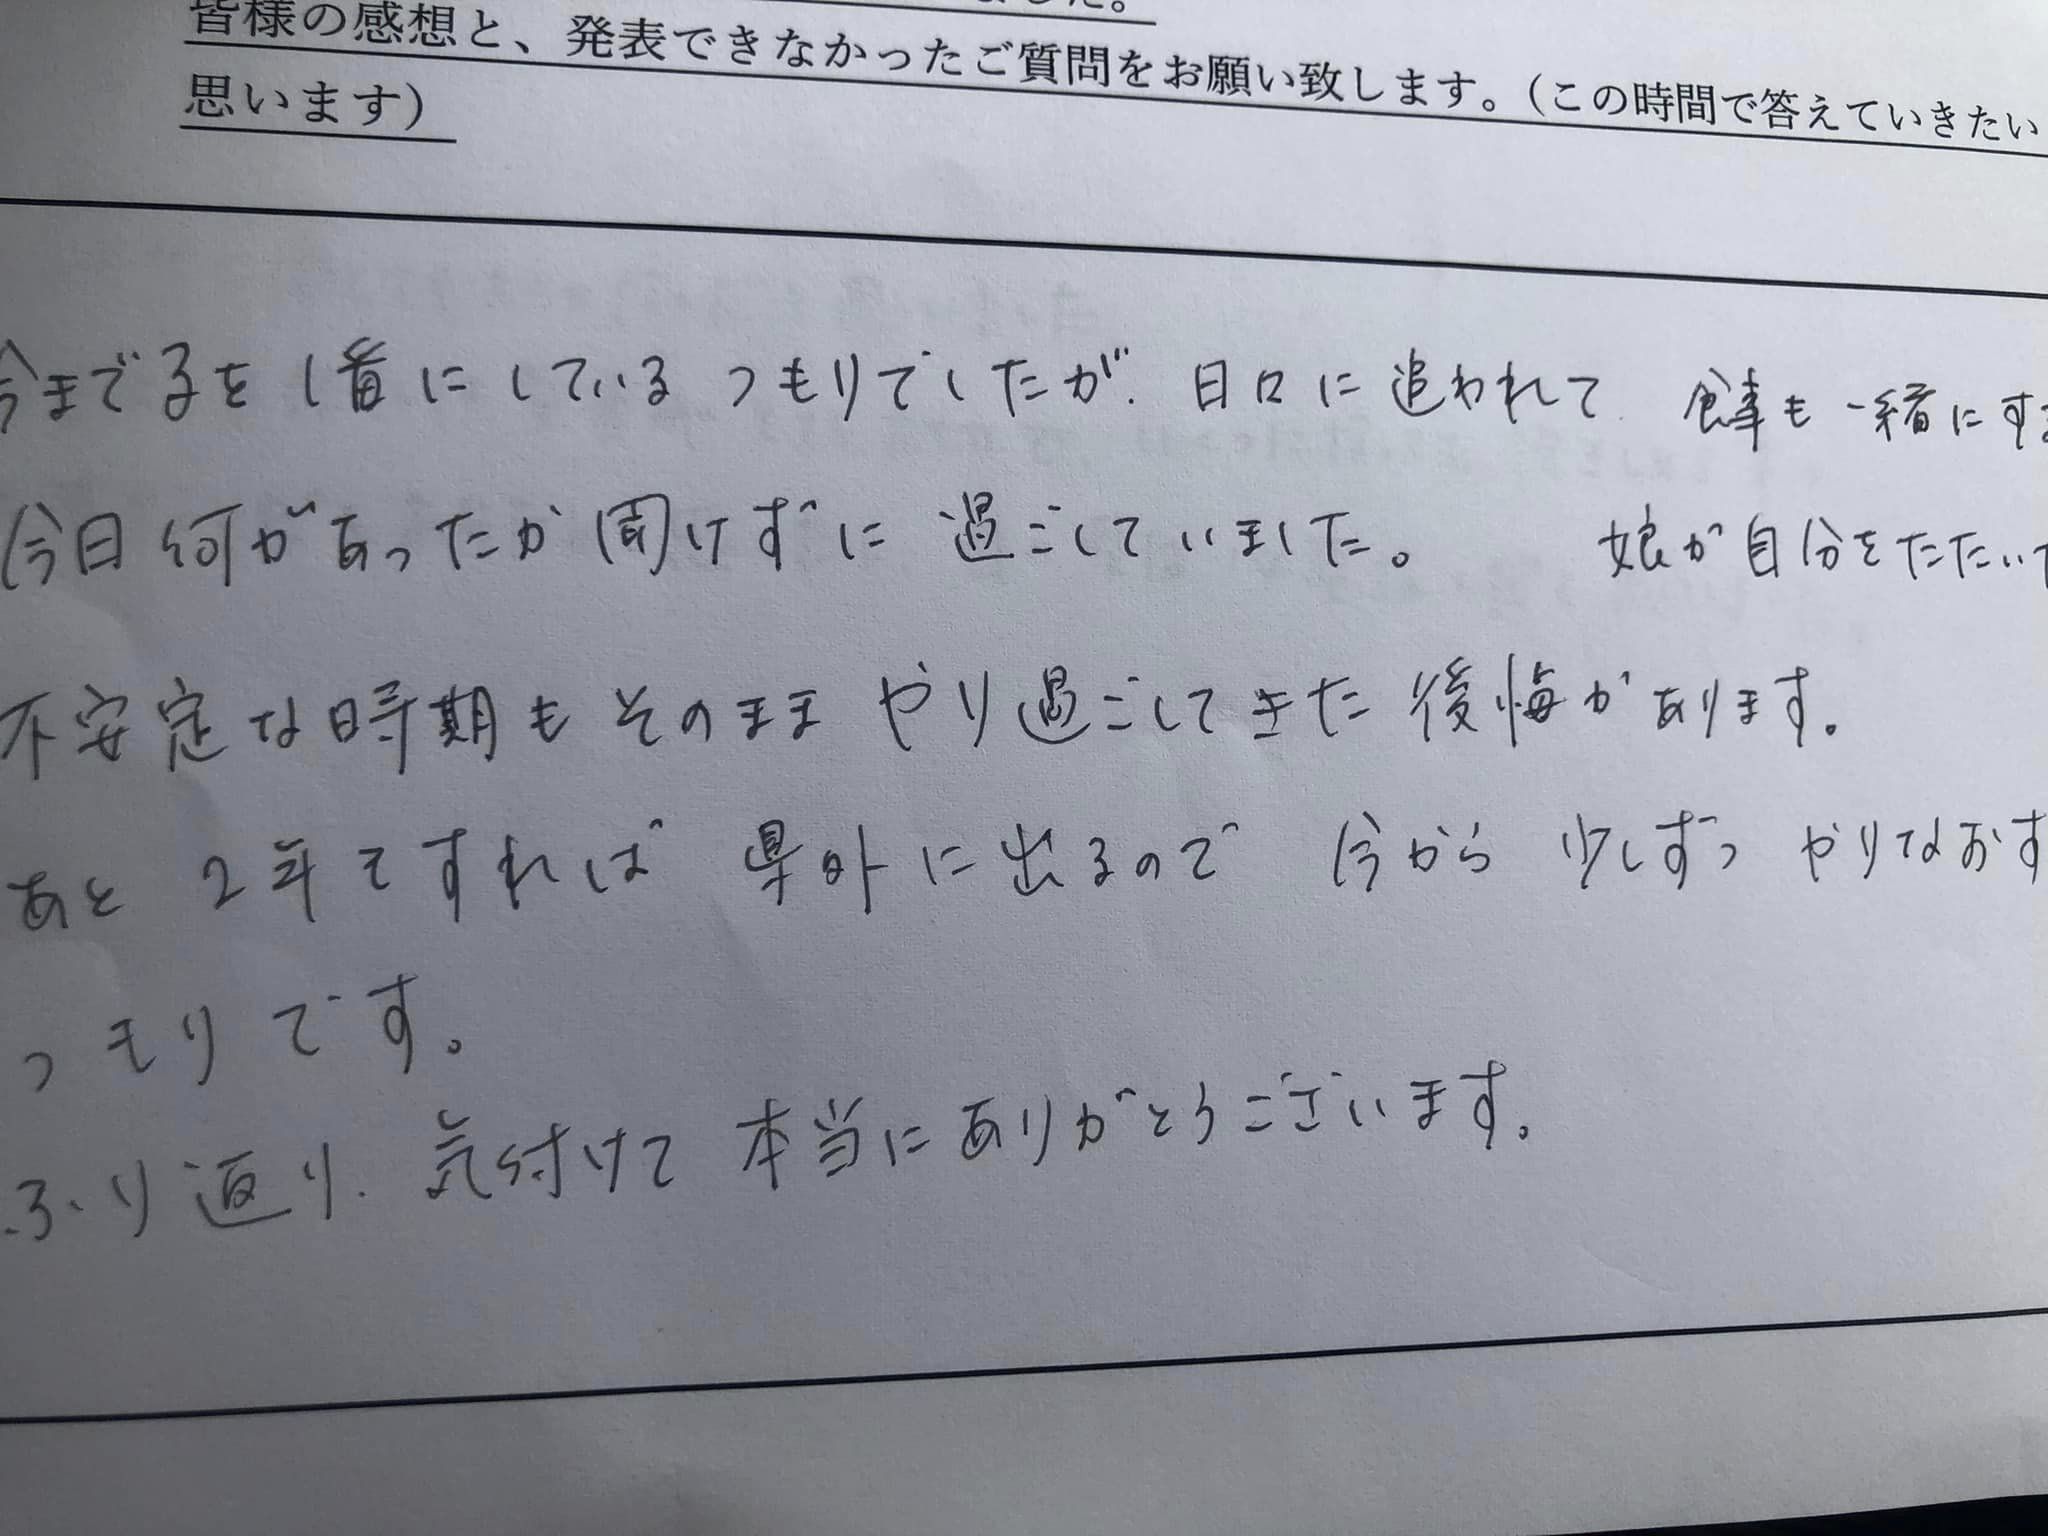 した。
皆様の感想と、発表できなかったご質問をお願い致します。（この時間で答えていきたい
思います）
今まで子を1番にしているつもりでしたが、日々に追われて 食事も一緒にす
今日何があったか聞けずに過ごしていました。 娘が自分をたたいて
不安定な時期もそのままやり過ごしてきた後悔があります。
あと2年ですれば県外に出るので 今から 少しずつ やりなおす
つもりです。
ふり返り、気付けて本当にありがとうございます。